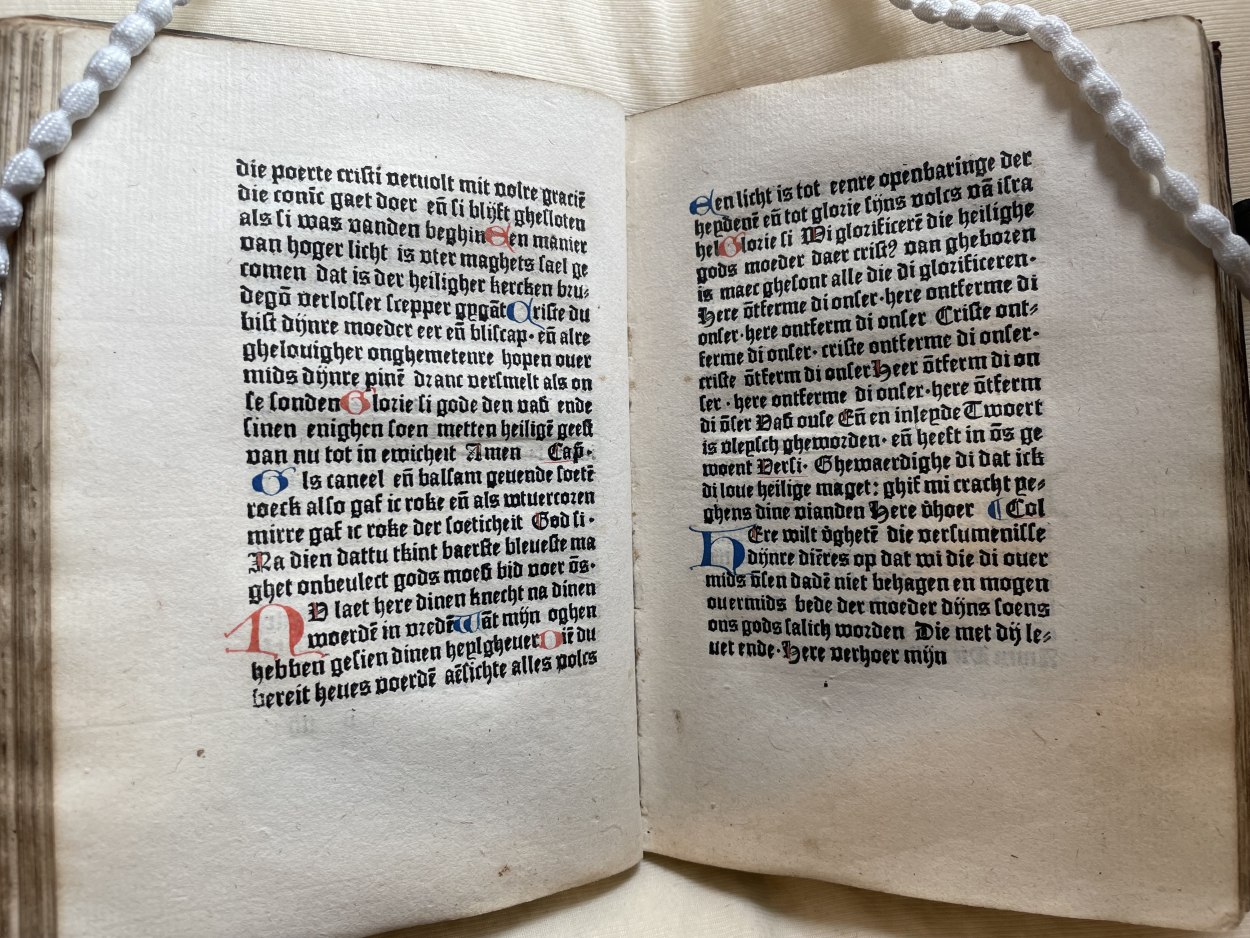 die poerte cristi vervolt mit volre graciē
die conīc gaet doer eñ si blijft ghesloten
als si was vanden beghin Een manier
van hoger licht is vter maghets sael ge
comen dat is der heiligher kercken bru⸗
degō verlosser scepper gygāt Criste du
bist dijnre moeder eer eñ bliscap· eñ alre
ghelouigher onghemetenre hopen ouer
mids dijnre pinē dranc versmelt als on
se sonden Glorie si gode den vad̄ ende
sinen enighen soen metten heiligē geest
van nu tot in ewicheit Amen Cap̄·
Als caneel eñ balsam geuende soetē
roeck also gaf ic roke eñ als wtuercoren
mirre gaf ic roke der soeticheit God si·
Na dien dattu tkint baerste bleueste ma
ghet onbeulect gods moed̄ bid voer ōs·
NV laet here dinen knecht na dinen
woerdē in vredē Wāt mijn oghen
hebben gesien dinen heylgheuer Diē du
bereit heues voerdē aēsichte alles volcs
Een licht is tot eenre openbaringe der
heydenē eñ tot glorie sijns volcs vā isra
hel Glorie si Wi glorificerē die heilighe
gods moeder daer crist⁹ van gheboren
is maec ghesont alle die di glorificeren·
Here ōtferme di onser·here ontferme di
onser·here ontferm di onser Criste ont⸗
ferme di onser· criste ontferme di onser·
criste ōtferm di onser Heer ōtferm di on
ser·here ontferme di onser·here ōtferm
di ōser Vad̄ onse Eñ en inleyde Twoert
is vleysch gheworden· eñ heeft in ōs ge
woent Versi· Ghewaerdighe di dat ick
di loue heilige maget: ghif mi cracht ye⸗
ghens dine vianden Here v̄hoer ⸿Col
HEre wilt v̄ghetē die versumenisse
dijnre diēres op dat wi die di ouer
mids ōsen dadē niet behagen en mogen
ouermids bede der moeder dijns soens
ons gods salich worden Die met dij le⸗
uet ende· Here verhoer mijn